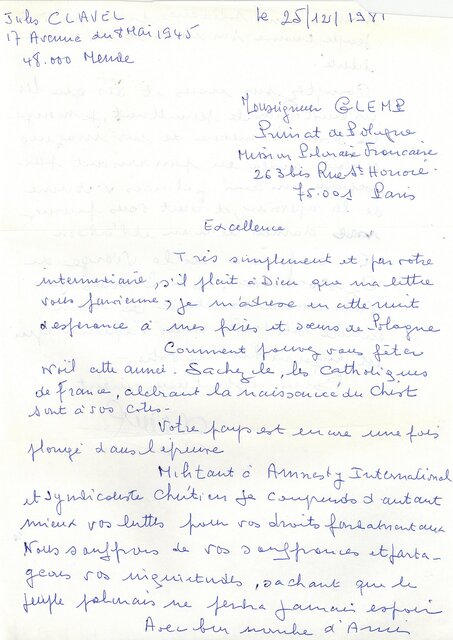 Jules CLAVEL
le 25/12/1981
17 Avenue du 8 Mai 1945
48.000 Mende
Monseigneur GLEMP
Primat de Pologne
Mission Polonaise Francaise
263 bis Rue St Honoré
75.001 Paris
Excellence
Très simplement et par votre
intermédiaire, s'il plait à Dieu que ma lettre
vous parvienne, je m'adresse en cette nuit
d'espérance à mes frères et soeurs de Pologne
Comment pouvez vous fêter
Noël cette année. Sachez le, les Catholiques
de france, célébrant la naissance du Christ
sont à vos cotés -
Votre pays est encore une fois
plongé dans l'épreuve
Militant à Amnesty International
et Syndicaliste Chrétien je comprends d'autant
mieux vos luttes pour vos droits fondamentaux
Nous souffrons de vos souffrances et parta-
geons vos inquiétudes, sachant que le
peuple polonais ne perdra jamais espoir
Avec bon nombre d'Amis